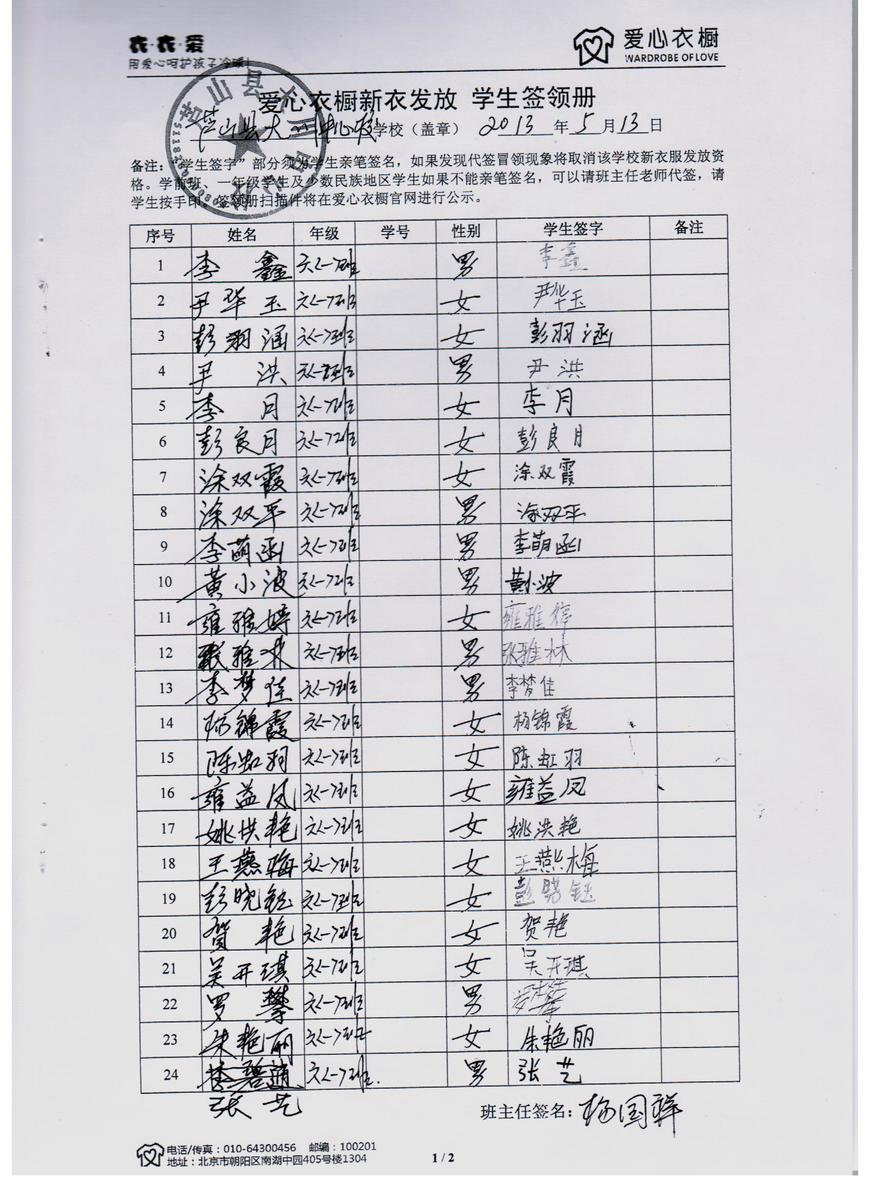 衣·衣·爱
用爱心呵护孩子冷暖!
爱心衣橱
WARDROBE OF LOVE
爱心衣橱新衣发放 学生签领册
芦山县大川中心校学校（盖章） 2013 年 5 月 13 日
备注：“学生签字”部分须为学生亲笔签名，如果发现代签冒领现象将取消该学校新衣服发放资
格。学前班、一年级学生及少数民族地区学生如果不能亲笔签名，可以请班主任老师代签，请
学生按手印。签领册扫描件将在爱心衣橱官网进行公示。
序号 姓名 年级 学号 性别 学生签字 备注
1 李鑫 六<一>班 男 李鑫
2 尹华玉 六<一>班 女 尹华玉
3 彭羽涵 六<一>班 女 彭羽涵
4 尹洪 六<一>班 男 尹洪
5 李月 六<一>班 女 李月
6 彭良月 六<一>班 女 彭良月
7 涂双霞 六<一>班 女 涂双霞
8 涂双平 六<一>班 男 涂双平
9 李萌函 六<一>班 男 李萌函
10 黄小波 六<一>班 男 黄小波
11 雍雅婷 六<一>班 女 雍雅婷
12 张雅林 六<一>班 男 张雅林
13 李梦佳 六<一>班 男 李梦佳
14 杨锦霞 六<一>班 女 杨锦霞
15 陈虹羽 六<一>班 女 陈虹羽
16 雍益凤 六<一>班 女 雍益凤
17 姚洪艳 六<一>班 女 姚洪艳
18 王燕梅 六<一>班 女 王燕梅
19 彭晓钰 六<一>班 女 彭晓钰
20 贺艳 六<一>班 女 贺艳
21 吴开琪 六<一>班 女 吴开琪
22 罗攀 六<一>班 男 罗攀
23 朱艳丽 六<一>班 女 朱艳丽
24 六<一>班 男 张艺
张艺
班主任签名：杨国祥
电话/传真：010-64300456 邮编：100201
地址：北京市朝阳区南湖中园405号楼1304
1 / 2